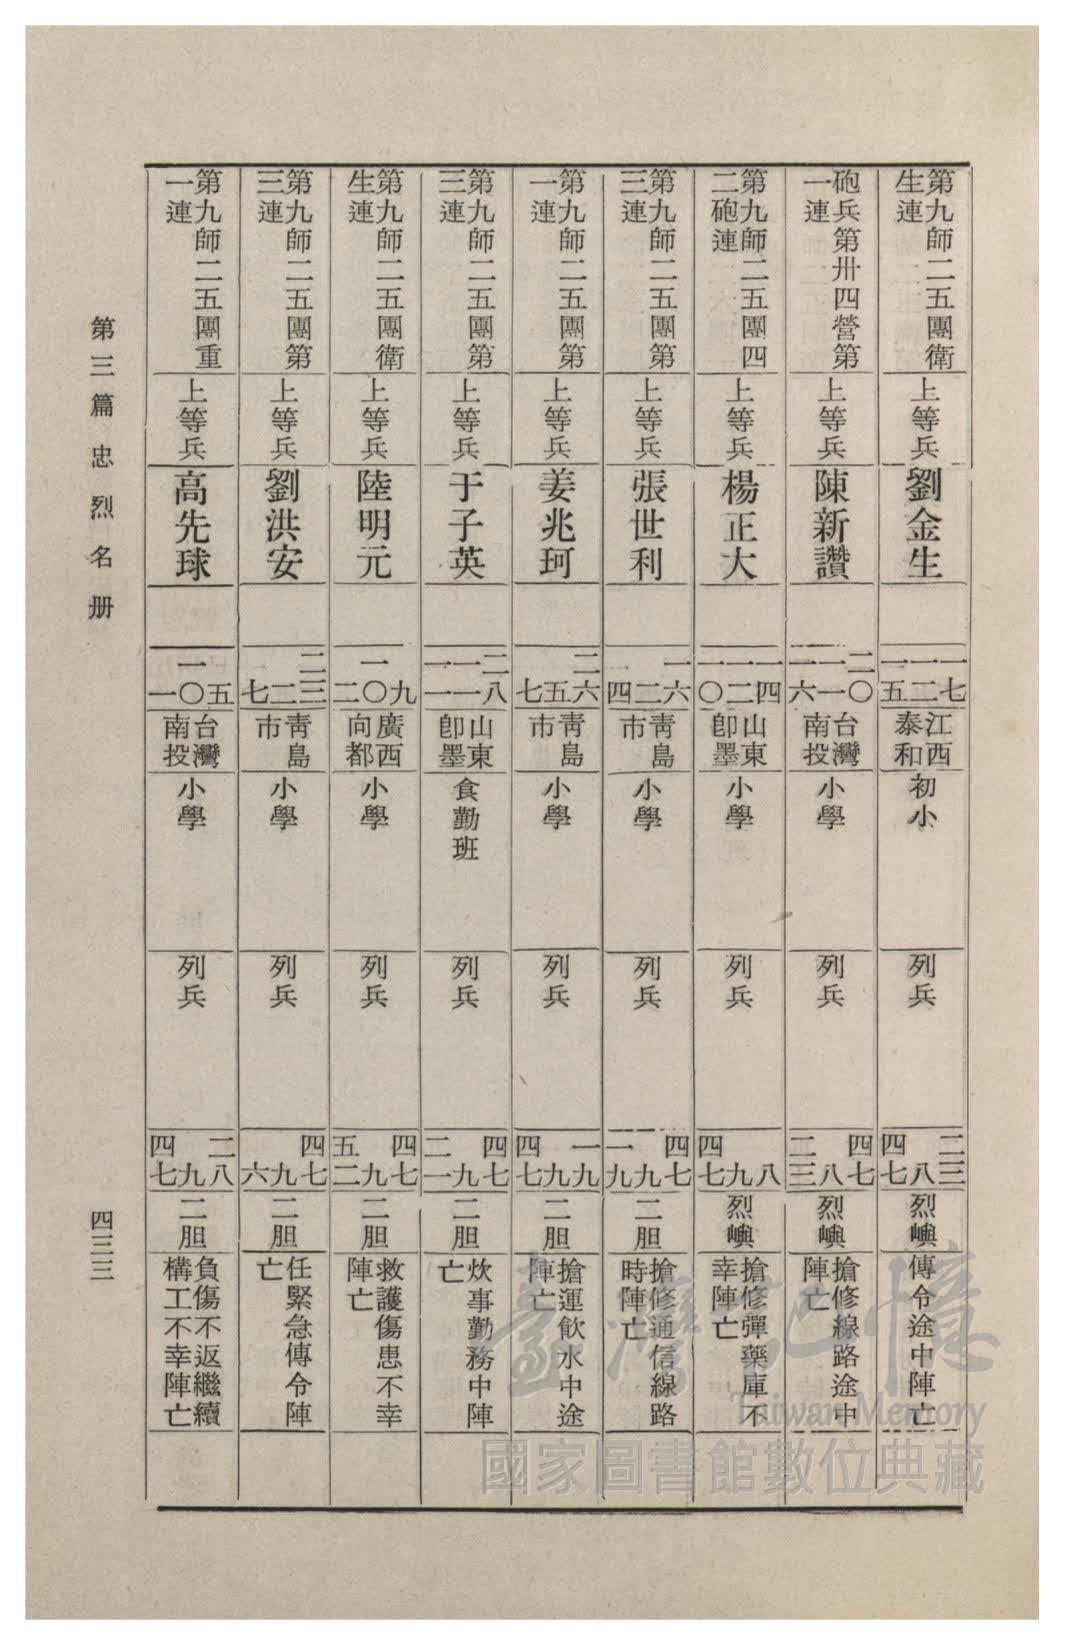 第九師二五團衛
生連
上等兵
劉金生
一七
一二
一五
江西
泰和
初小
列兵
四七 八 二三
烈嶼
傳令途中陣亡
砲兵第卅四營第
一連
上等兵
陳新讚
二〇
一一
一六
台灣
南投
小學
列兵
四七 八 二三
烈嶼
搶修線路途中
陣亡
第九師二五團四
二砲連
上等兵
楊正大
一四
一二
一〇
山東
卽墨
小學
列兵
四七 九 八
烈嶼
搶修彈藥庫不
幸陣亡
第九師二五團第
三連
上等兵
張世利
一六
二
四
青島
市
小學
列兵
四七 九 一九
二胆
搶修通信線路
時陣亡
第九師二五團第
一連
上等兵
姜兆珂
二六
五
七
青島
市
小學
列兵
四七 九 一九
二胆
搶運飲水中途
陣亡
第九師二五團第
三連
上等兵
于子英
二八
一一
一一
山東
卽墨
食勤班
列兵
四七 九 二一
二胆
炊事勤務中陣
亡
第九師二五團衛
生連
上等兵
陸明元
九
一〇
二
廣西
向都
小學
列兵
四七 九 五二
二胆
救護傷患不幸
陣亡
第九師二五團第
三連
上等兵
劉洪安
二三
二
七
青島
市
小學
列兵
四七 九 六
二胆
任緊急傳令陣
亡
第九師二五團重
一連
上等兵
高先球
五
一〇
一
台灣
南投
小學
列兵
四七 九 二八
二胆
負傷不返繼續
構工不幸陣亡
第三篇 忠烈名册
四三三
臺灣記憶
Taiwan Memory
國家圖書館數位典藏